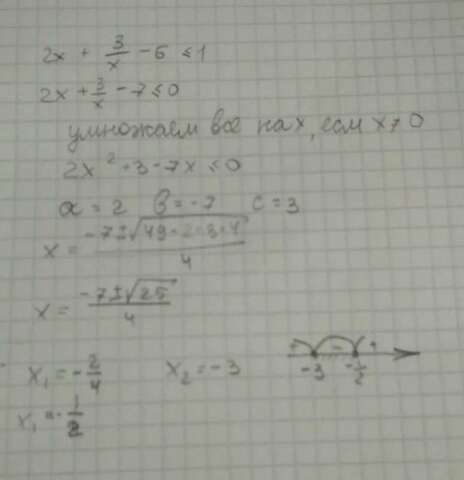 2x + 3/x - 6 ≤ 1
2x + 3/x - 7 ≤ 0
умножаем все на x, если x ≠ 0
2x² + 3 - 7x ≤ 0
a = 2 b = -7 c = 3
x = (-7 ± √(49 - 2·3·4))/4
x = (-7 ± √25)/4
x₁ = -2/4 x₂ = -3
+ - +
-3 -1/2
x₁ = -1/2